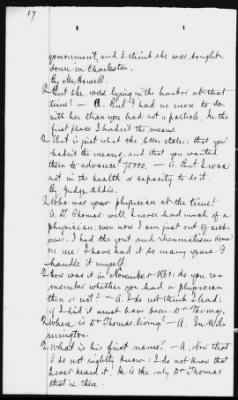 17
government, and I think she was bought
down in Charleston.
By Mr. Howell.
Q But she was lying in the harbor at that
time? — A. But I had no more to do
with her than you had not a particle. In the
first place I hadn't the means.
Q That is just what the letter states: that you
hadn't the means, and that you wanted
them to advance $75000. — A. But I was
not in the health or capacity to do it.
By Judge Aldis.
Q Who was your physician at the time?
A. Dr. Thomas: well I never had much of a
physician: even now I am just out of
I had the gout and rheumatism
on me. I have had it so many years I
handle it myself.
Q How was it in November 1861: do you re-
member whether you had a physician
then or not? — A. I do not think I had:
if I did it must have been Dr Thomas.
Q Where is Dr Thomas living? — A. In Wil-
mington.
Q What is his first name? — A. Now that
I do not rightly know: I do not know that
I ever heard it. He is the only Dr Thomas
that is there.